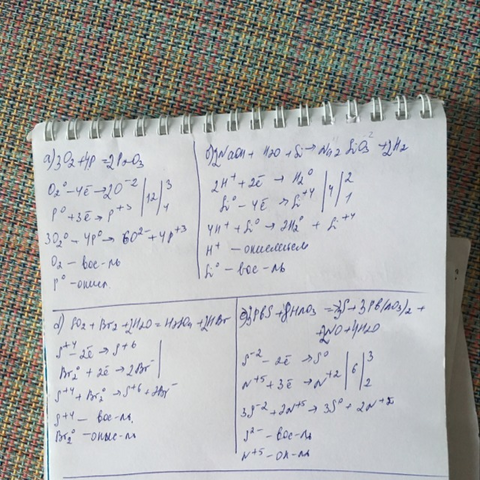 а) 3O2+4P=2P2O3
O2⁰ -4ē→2O⁻² | 12 | 3
P⁰+3ē→P⁺³ | 4
3O2⁰ -4P⁰→6O²⁻+4P⁺³
O2 – вос-ль
P⁰ -окисл
2NaOH + H2O + Si → Na2SiO3 + 2H2
2H⁺+2ē→H2⁰ | 4 | 2
Si⁰-4ē→Si⁺⁴ | 1
4H⁺+Si⁰→2H2⁰ + Si⁺⁴
H⁺ – окислителем
Si⁰ – вос-ль
SO2+Br2+2H2O=H2SO4+2HBr
S⁺⁴-2ē→S⁺⁶
Br2⁰+2ē→2Br⁻
S⁺⁴+Br2⁰→S⁺⁶+2Br⁻
S⁺⁴ – вос-ль
Br2⁰ -окис-ль
3PbS+8HNO3=3S+3Pb(NO3)2+
2NO+4H2O
S⁻²-2ē→S⁰ | 6 | 3
N⁺⁵+3ē→N⁺² | 2
3S⁻²+2N⁺⁵→3S⁰+2N⁺²
S²⁻ – вос-ль
N⁺⁵ – ок-ль